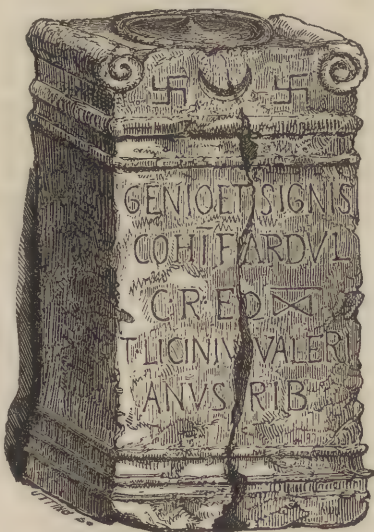 GENIO ET SIGNIS
COH Ī F ARDVL
C R EQ ⋈
T LICINIV VALERI
ANVS RIB
UTTING Sc